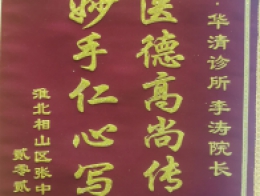 ·华清诊所 李涛院长
医德高尚传
妙手仁心写
淮北相山区张中
贰零贰